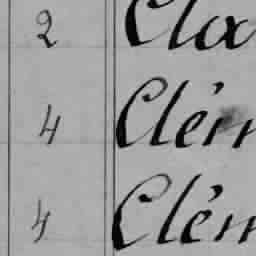 2 Clo
4 Clém
4 Clém